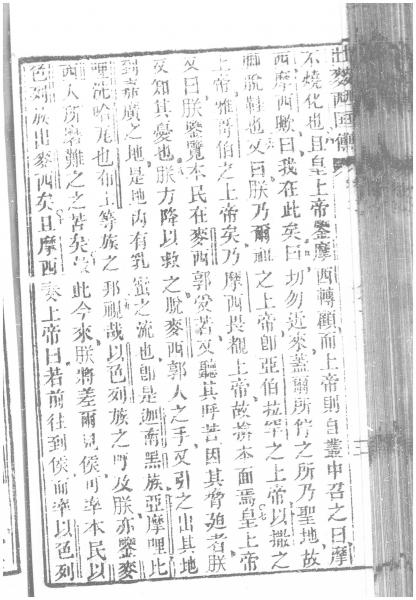 出麥西國傳
不燒化也且皇上帝鑒摩西轉顧而上帝則自叢中召之曰摩
西摩西歟曰我在此矣曰切勿近來蓋爾所佇之所乃聖地故
脫鞋也又曰朕乃爾祖之上帝卽亞伯拉罕之上帝以撒之
上帝雅哥伯之上帝矣乃摩西畏覩上帝故捨本面焉皇上帝
又曰朕鑒覽本民在麥西郭受苦又聽其呼苦因其脅廹者朕
又知其憂也朕方降以救之脫麥西郭人之手又引之出其地
到亦廣之地是地內有乳蜜之流也卽是迦南黑族亞摩哩比
哩洗哈尾也布士等族之那視哉以色列族之呼及朕亦鑒麥
西人所磨難之之苦矣 此今來朕將差爾見侯可率本民以
色列族出麥西矣且摩西 上帝曰若前往到侯而率以色列